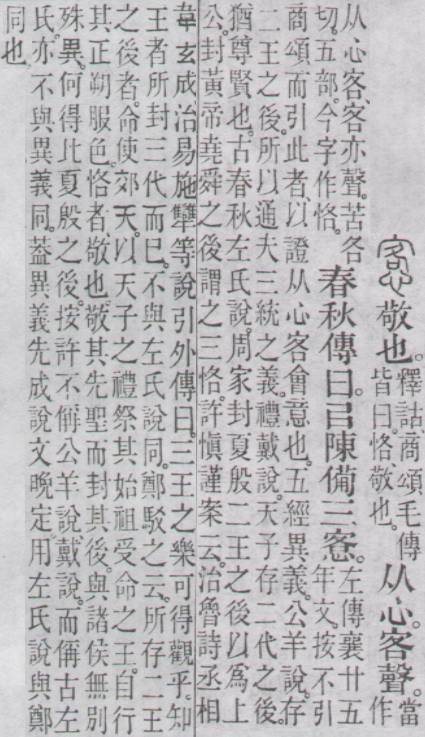 愙 敬也。釋詁、商頌毛傳皆曰。恪、敬也。从心。客聲。當作
从心客、客亦聲。苦各切。五部。今字作恪。春秋傳曰。㠯陳備三愙。左傳襄廿五年文。按不引
商頌而引此者、以證从心客會意也。五經異義。公羊說。存
二王之後。所以通夫三統之義。禮戴說。天子存二代之後。
猶尊賢也。古春秋左氏說。周家封夏殷二王之後以爲上
公。封黃帝堯舜之後謂之三恪。許慎謹案云。治魯詩丞相
韋玄成治易施犫等說引外傳曰。三王之樂可得觀乎。知
王者所封三代而已。不與左氏說同。鄭駁之云。所存二王
之後者。命使郊天。以天子之禮祭其始祖受命之王。自行
其正朔服色。恪者、敬也。敬其先聖而封其後。與諸侯無別
殊異。何得比夏殷之後。按許不偁公羊說戴說。而偁古左
氏。亦不與異義同。葢異義先成。說文晚定。用左氏說與鄭
同也。